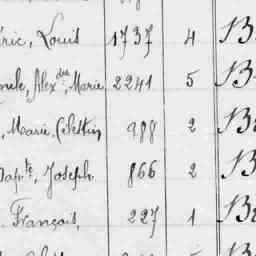 ric, Louis 1737 4 B
Alex^dre, Marie 2241 5 B
, Marie, Célestin 988 2 B
Bap^te, Joseph 866 2 B
François, 227 1 B